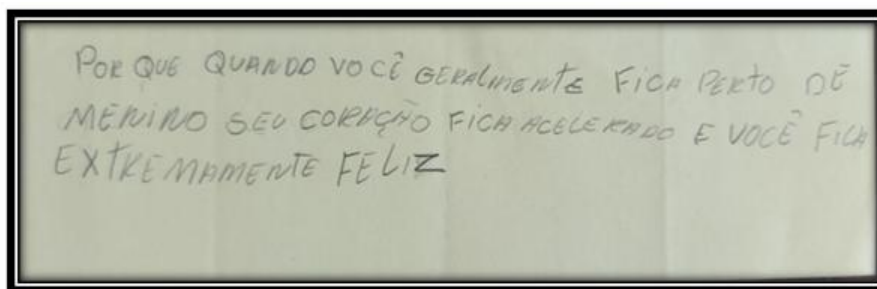 POR QUE QUANDO VOCÊ GERALMENTE FICA PERTO DE
MENINO SEU CORAÇÃO FICA ACELERADO E VOCÊ FICA
EXTREMAMENTE FELIZ